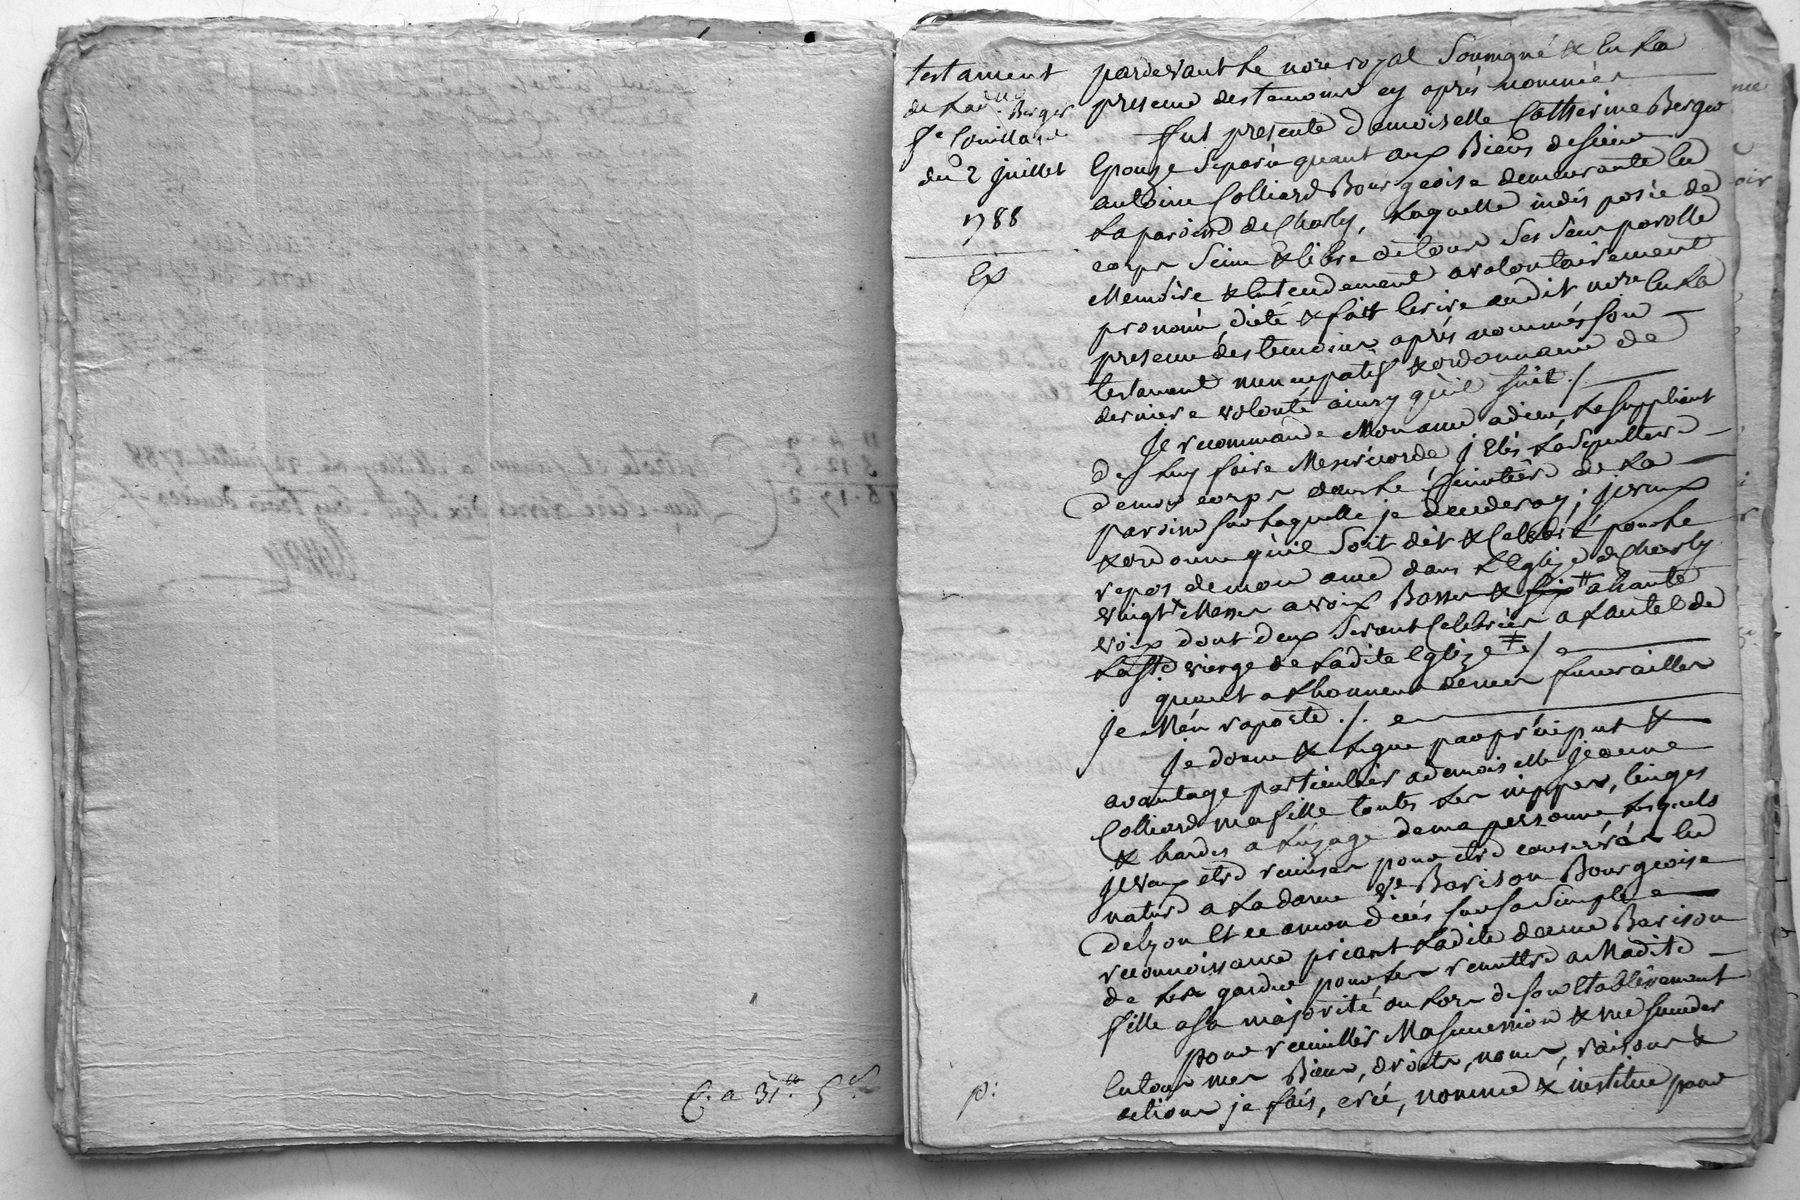 testament
de Lad.lle Berger
fe Couillard
du 2 juillet
1788
Ex
pardevant Le nore royal Soussigné & En La
presence des temoins cy aprés nommées
fut presente demoiselle Catherine Berger
Epouze Separée quant aux Biens de sieur
antoine Colliard Bourgeoise demeurante En
La paroisse de Charly, Laquelle indisposée de
corps Seine & libre de tous Ses Sens parolle
Memoire & Entendement a volontairement
prononcé, dicté & fait Ecrire audit nore En La
presence des temoins aprés nommés son
testament nuncupatif & ordonnance de
derniere volonté ainsy qu'il suit ./.
Je recommande Mon ame a dieu Le suppliant
de Luy faire Misericorde j'Elis La Sepulture
de mon corps dans Le Cimetiere de La
paroisse sur Laquelle je decederay; je veux
& ordonne qu'il Soit dit & Celebré pour Le
repos de mon ame dans L'Eglize de Charly
vingt Messes a voix Basses & six # a haute
voix dont deux Seront Celebrées a L'autel de
La Ste vierge de Ladite Eglize # ./.
quant a L'honneur de mes funerailles
je M'en raporte ./.
Je donne & Legue par préciput &
avantage particulier a demoiselle Jeanne
Colliard ma fille toutes Les nippes, linges
& hardes a L'uzage de ma personne Lesquels
je veux etre remises pour etre conservées En
nature a La dame ve Barison Bourgeoise
de Lyon Et ce a mon décés sur sa Simple
reconnoissance priant Ladite dame Barison
de Les garder pour Les remettre a Madite
fille a sa majorité ou Lors de son Etablissement
pour recueillir Ma succession & me succeder
En tous mes Biens, droits, noms, raisons &
actions je fais, créé, nomme & institue pour
p:
C. a 31.tt 5 s